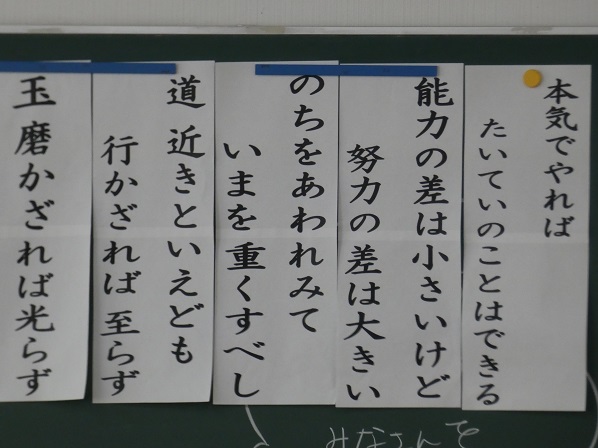 本気でやれば
たいていのことはできる
能力の差は小さいけど
努力の差は大きい
のちをあわれみて
いまを重くすべし
道 近きといえども
行かざれば 至らず
玉 磨かざれば光らず
みなさんを